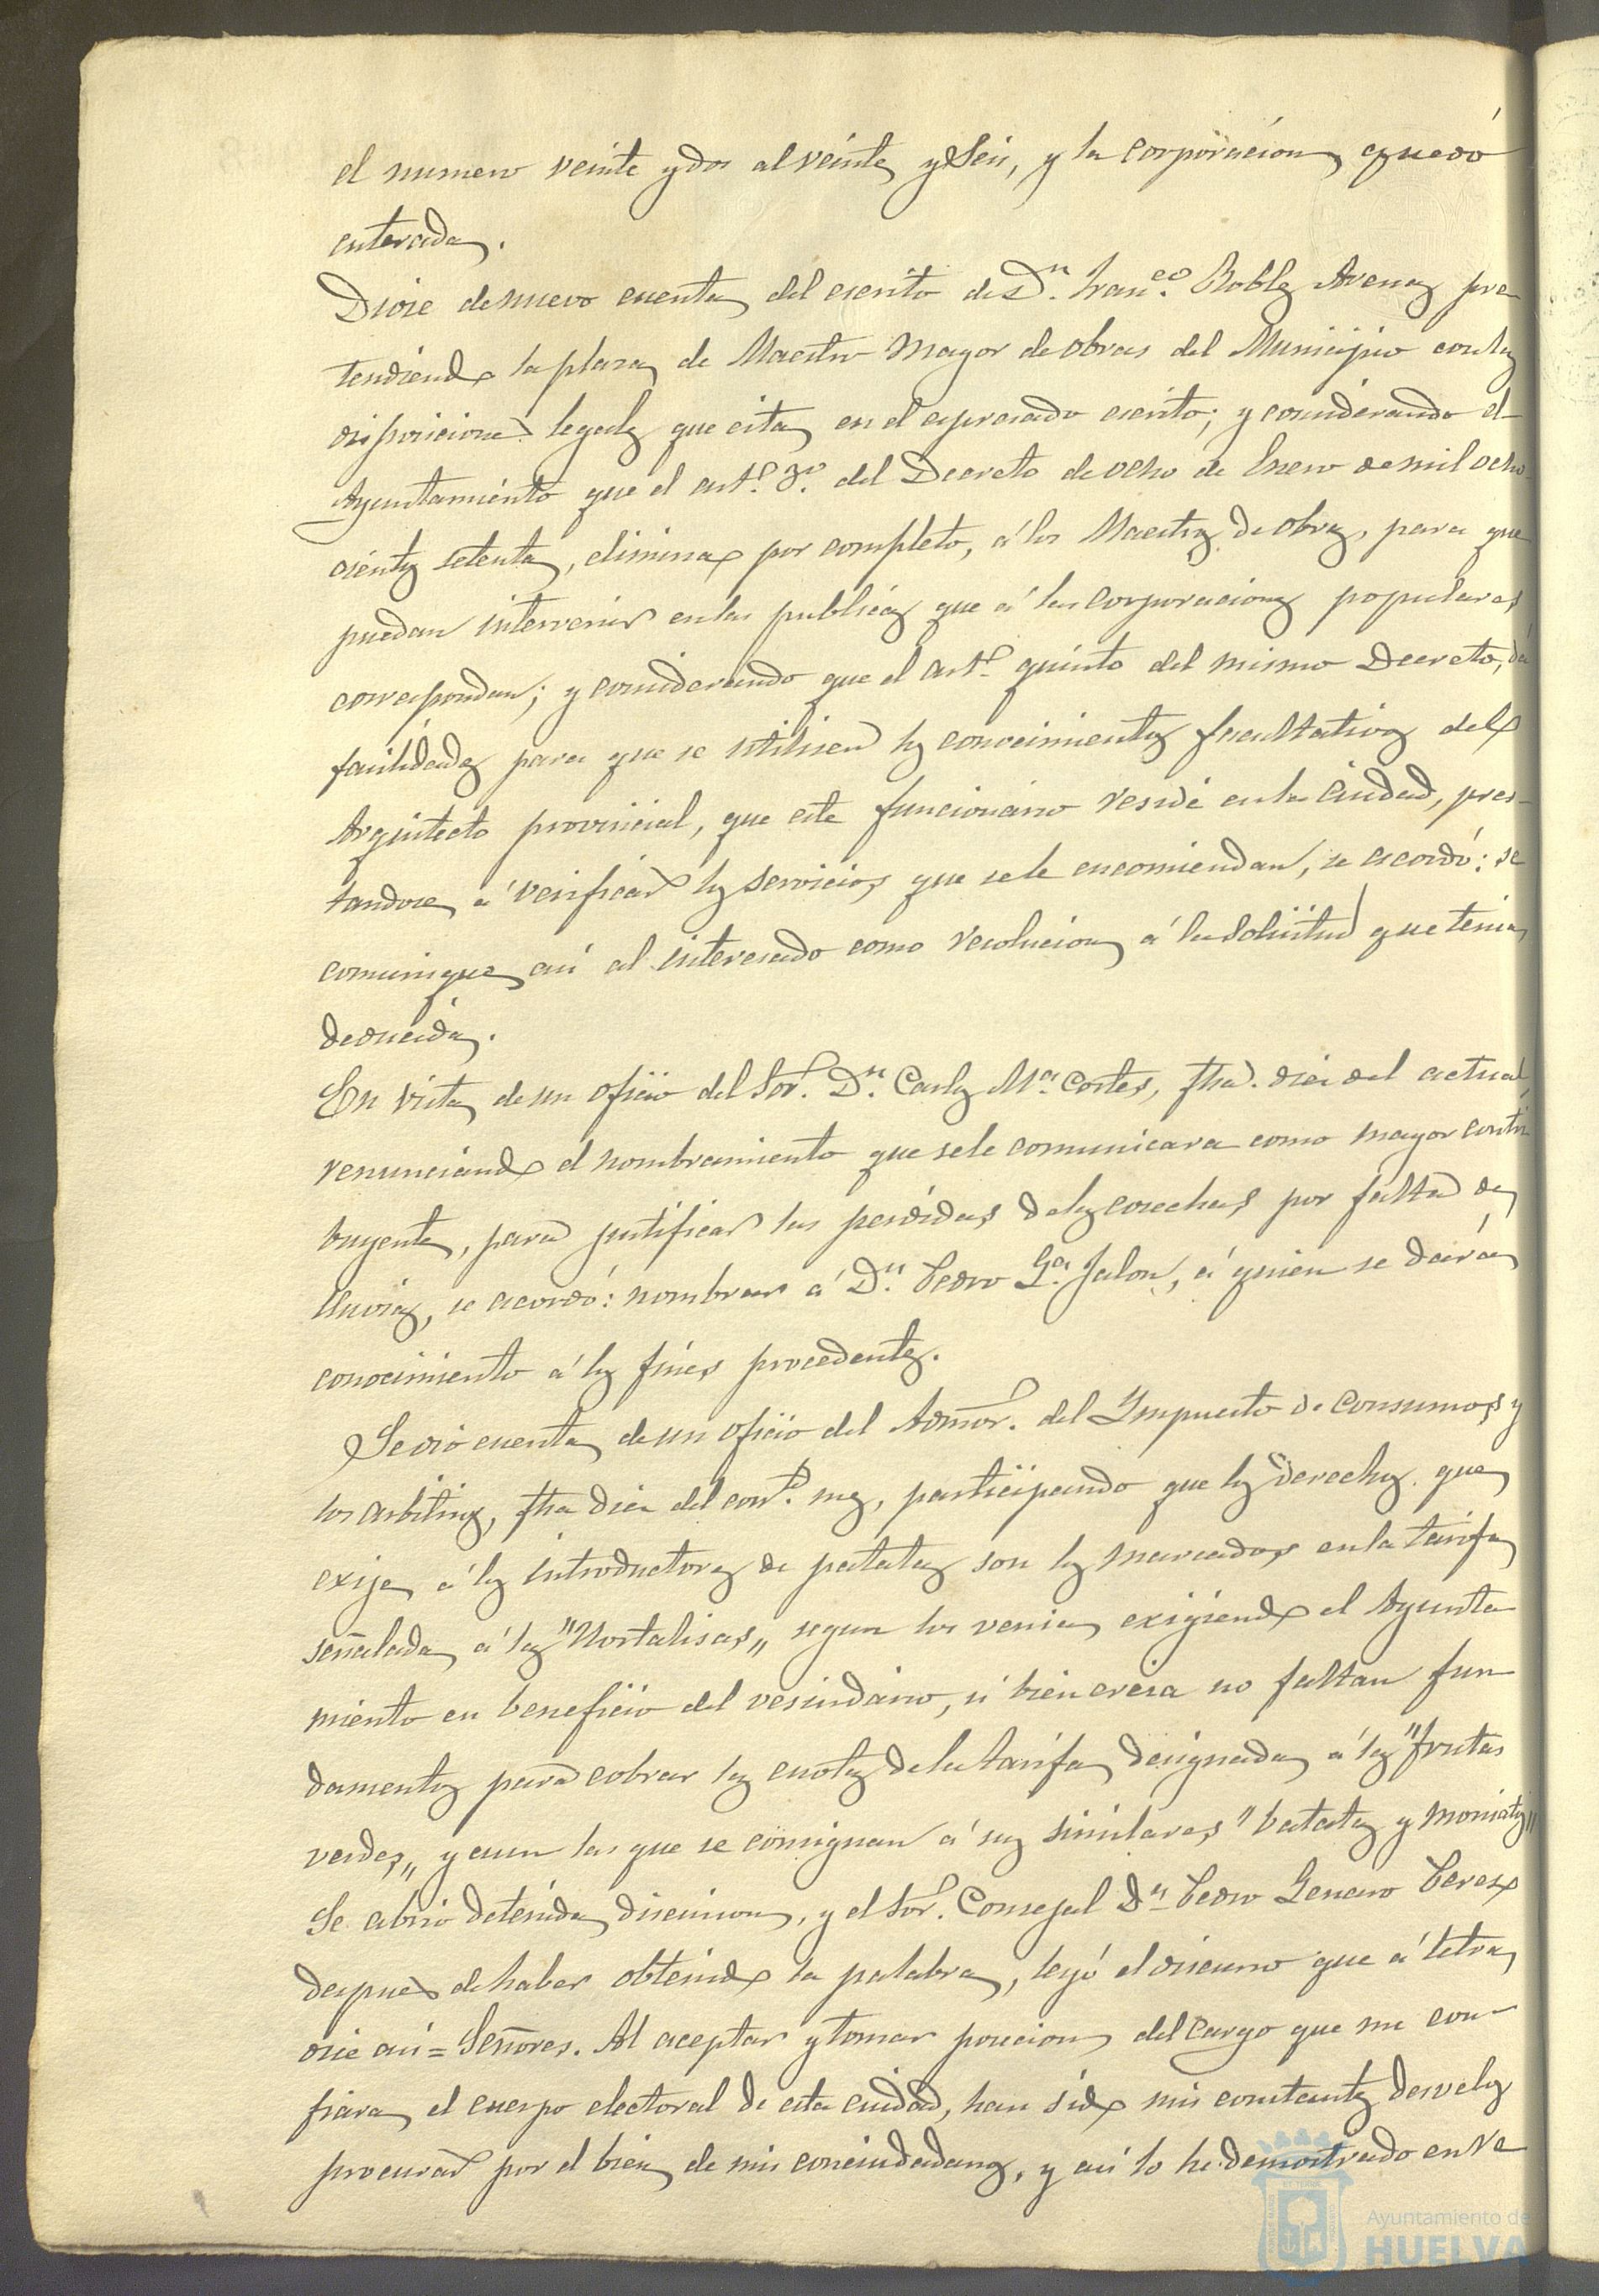 el numero veinte y dos al veinte y Seis, y la corporacion quedó
enterada.
Diose de nuevo cuenta del escrito de Dn. Franco. Robles Arenas pre
tendiendo la plaza de Maestro Mayor de obras del Municipio con las
disposiciones legales que cita en el espresado escrito; y considerando el
Ayuntamiento que el artº. 3º. del Decreto de ocho de Enero de mil ocho-
cientos setenta, elimina por completo, á los Maestros de obras, para que
puedan intervenir en las publicas que á las corporaciones populares
correspondan; y considerando que el artº. quinto del mismo Decreto, dá
facilidades para que se utilisen los conocimientos facultativos del
Arquitecto provincial, que este funcionario reside en la Ciudad, pres-
tandose á verificar los servicios que se le encomiendan, se acordó: se
comunique así al interesado como resolucion á la Solicitud que tenia
deducida.
En vista de un oficio del Sor. Dn. Carlos Ma. Cortes, fha. diez del actual,
renunciando el nombramiento que se le comunicara como mayor contri
buyente, para justificar las perdidas de las cosechas por falta de
lluvias, se acordó: nombrar á Dn. Pedro Ga. Jalon, á quien se dará
conocimiento á los fines procedentes.
Se dio cuenta de un oficio del Admor. del Impuesto de Consumos y
los arbitrios, fha diez del corte. mes, participando que los derechos que
exije á los introductores de patatas son los marcados en la tarifa
señalada á las "Hortalisas" segun los venia exigiendo el Ayunta
miento en beneficio del vesindario, si bien creia no faltan fun
damentos para cobrar las cuotas de la tarifa designada á las "frutas
verdes" y aun las que se consignan á sus similares "batatas y moniatos"
Se abrio detenida discusion, y el Sor. Consejal Dn. Pedro Genaro Perez
despues de haber obtenido la palabra, leyó el discurso que á letra
dice así = Señores. Al aceptar y tomar posecion del cargo que me con-
fiara el cuerpo electoral de esta ciudad, han sido mis constantes desvelos
procurar por el bien de mis conciudadanos, y así lo he demostrado en re
Ayuntamiento de
HUELVA